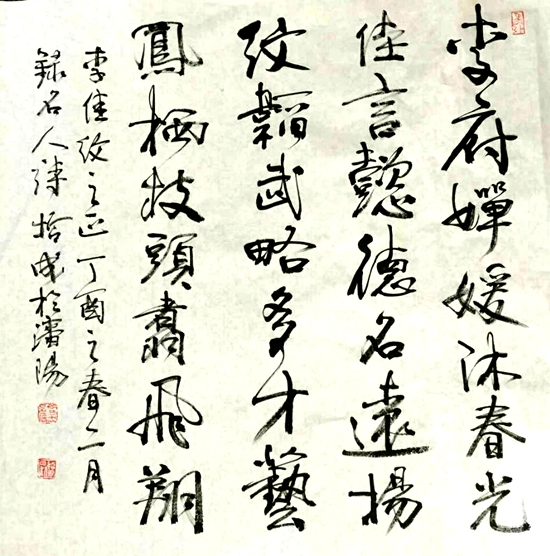 李府嬋媛沐春光
佳言懿德名遠揚
紋韜武略多才藝
鳳栖枝頭翥飛翔
李佳紋之正丁酉之春二月
録名人詩拾成於瀋陽